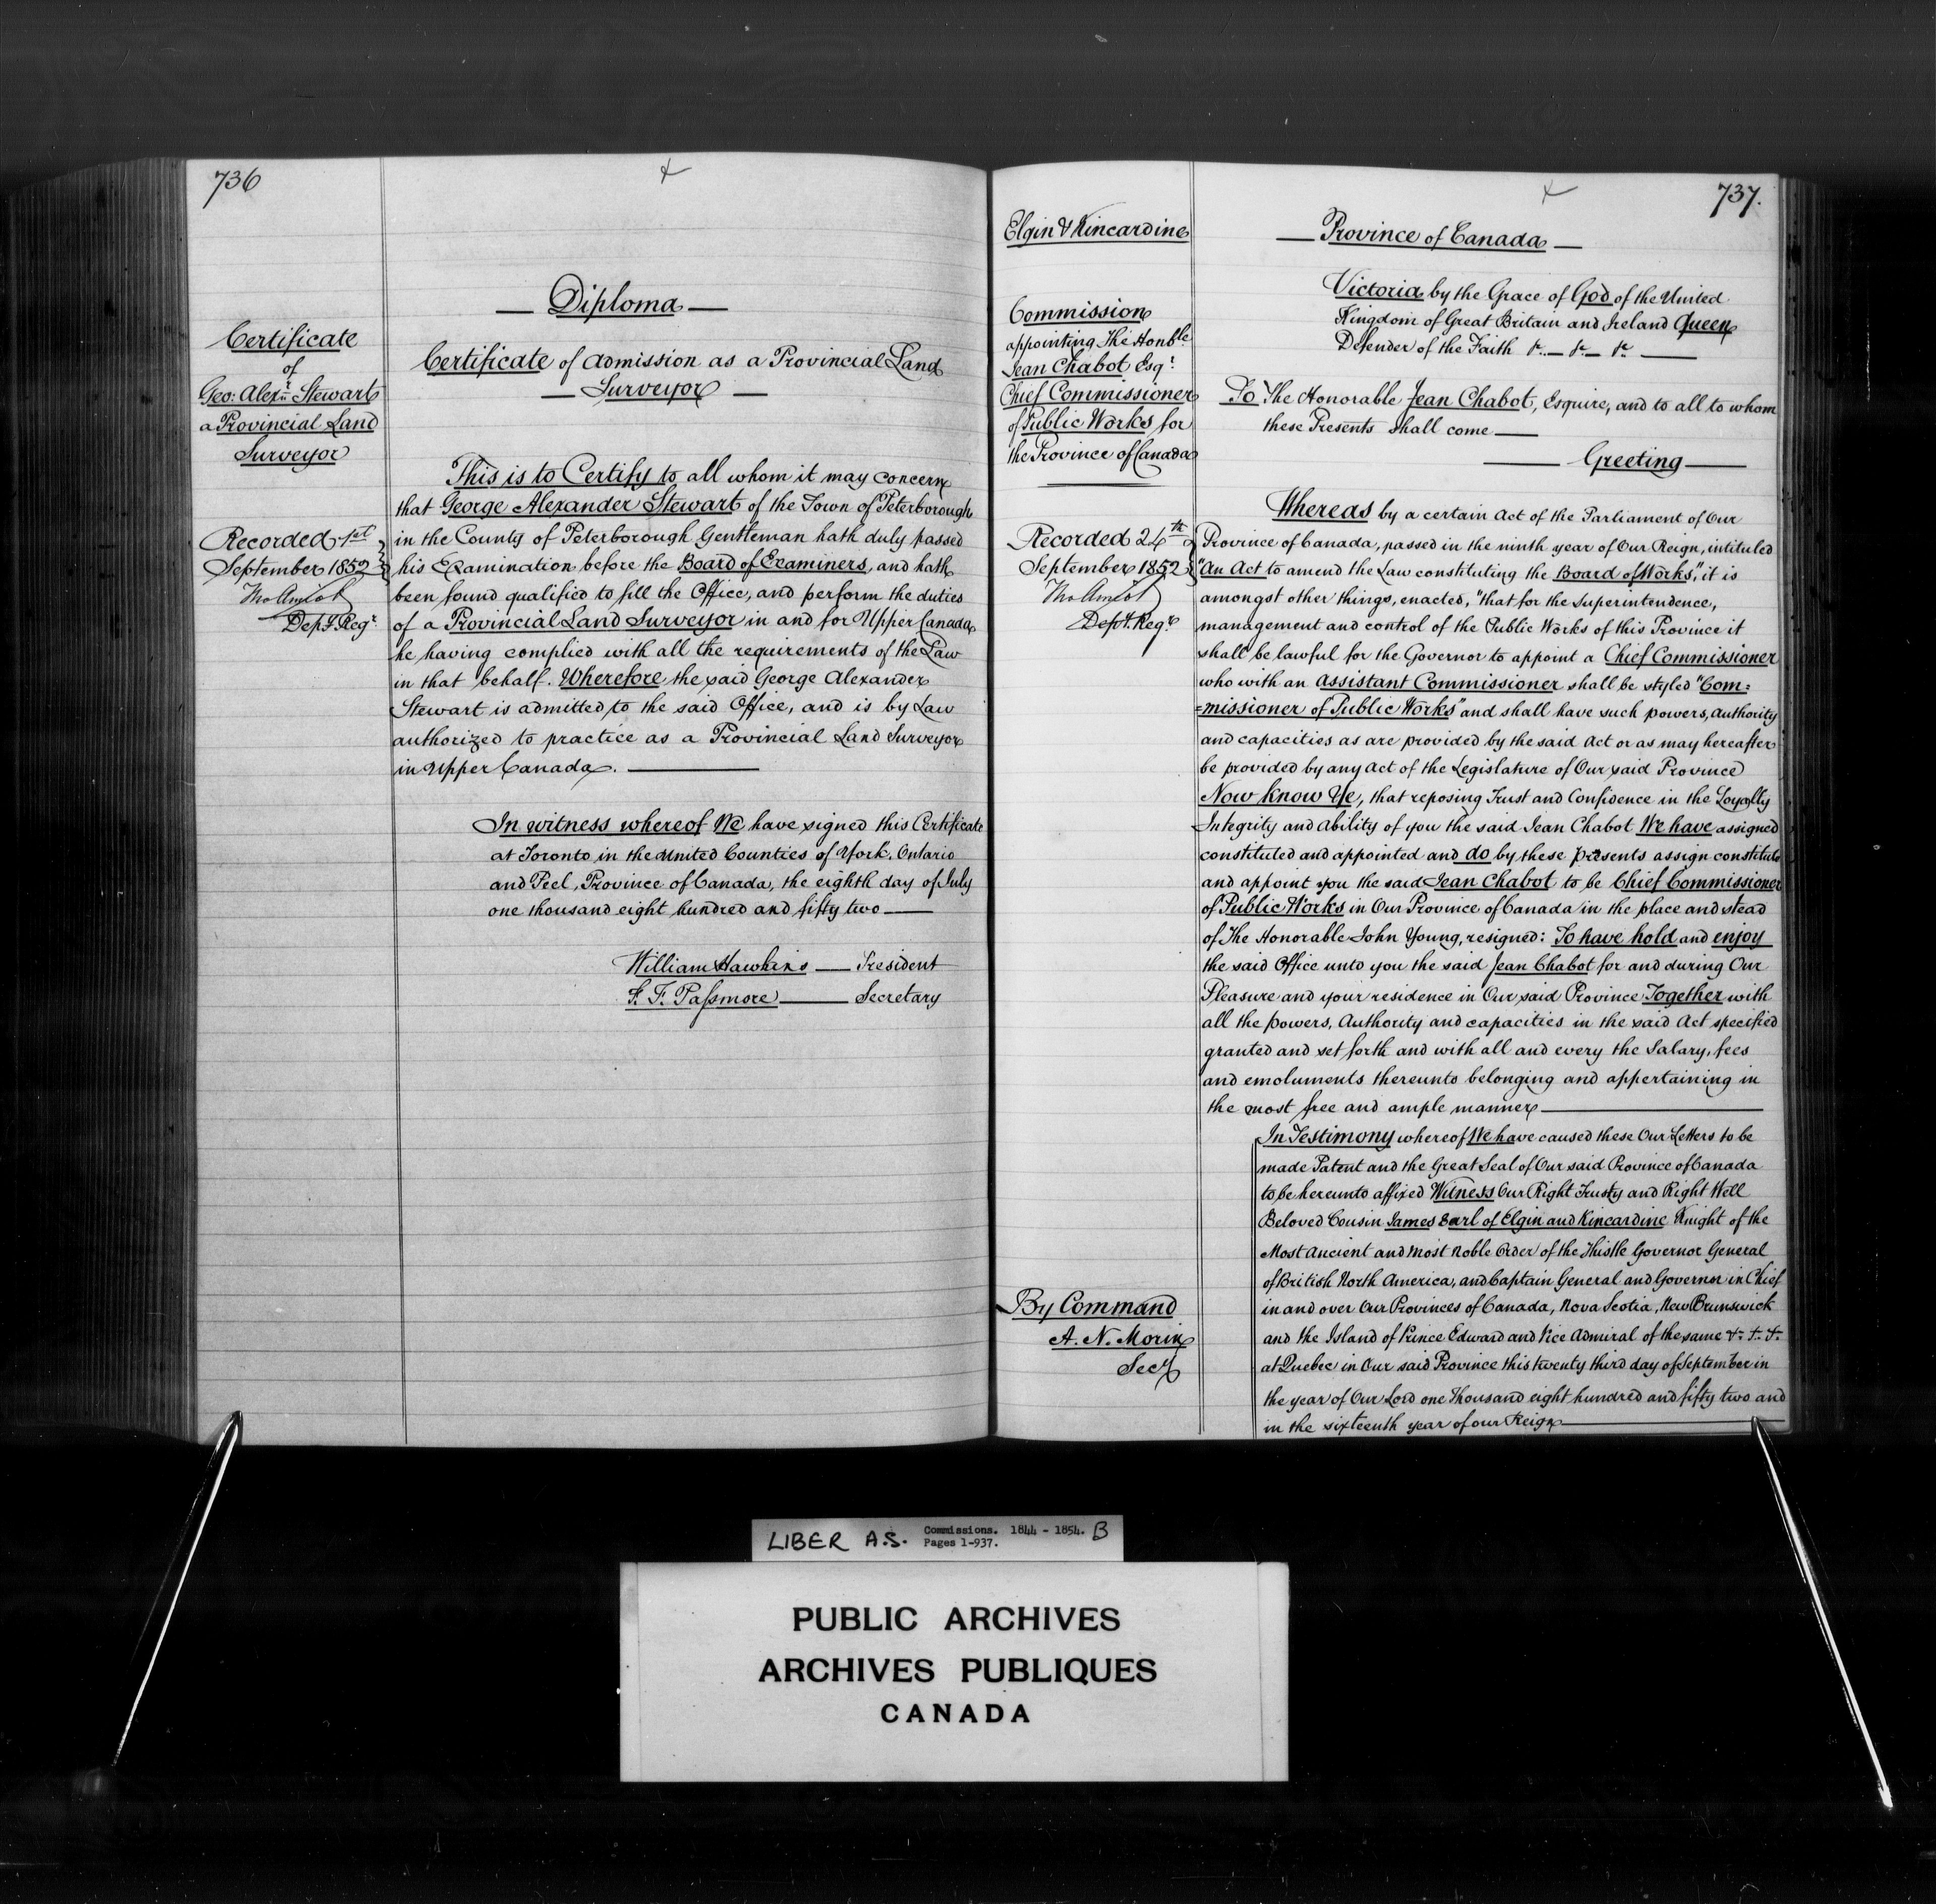 736
Diploma
Certificate
of
Geo: Alexr. Stewart
a Provincial Land
Surveyor
Recorded 1st
September 1852
Tho Amiot
Depy. Regr.
Certificate of Admission as a Provincial Land
Surveyor
This is to Certify to all whom it may concern
that George Alexander Stewart of the Town of Peterborough
in the County of Peterborough Gentleman hath duly passed
his Examination before the Board of Examiners, and hath
been found qualified to fill the Office, and perform the duties
of a Provincial Land Surveyor in and for Upper Canada
he having complied with all the requirements of the Law
in that behalf. Wherefore the said George Alexander
Stewart is admitted to the said Office, and is by Law
authorized to practice as a Provincial Land Surveyor
in Upper Canada.
In witness whereof We have signed this Certificate
at Toronto in the United Counties of York, Ontario
and Peel, Province of Canada, the eighth day of July
one thousand eight hundred and fifty two
William Hawkins — President
F. F. Passmore — Secretary
737.
Elgin & Kincardine
Commission
appointing The Honble.
Jean Chabot Esqr.
Chief Commissioner
of Public Works for
the Province of Canada
Recorded 24th
September 1852
Tho Amiot
Depy. Regr.
By Command
A. N. Morin
Secy
Province of Canada
Victoria by the Grace of God of the United
Kingdom of Great Britain and Ireland Queen
Defender of the Faith &c. — &c — &c
To The Honorable Jean Chabot, Esquire, and to all to whom
these Presents shall come
Greeting
Whereas by a certain Act of the Parliament of Our
Province of Canada, passed in the ninth year of Our Reign, intituled
"An Act to amend the Law constituting the Board of Works," it is
amongst other things, enacted, "that for the Superintendence,
management and control of the Public Works of this Province it
shall be lawful for the Governor to appoint a Chief Commissioner
who with an Assistant Commissioner shall be styled "Com=
=missioner of Public Works" and shall have such powers, Authority
and capacities as are provided by the said Act or as may hereafter
be provided by any Act of the Legislature of Our said Province
Now Know Ye, that reposing Trust and Confidence in the Loyalty
Integrity and Ability of you the said Jean Chabot We have assigned
constituted and appointed and do by these presents assign constitute
and appoint you the said Jean Chabot to be Chief Commissioner
of Public Works in Our Province of Canada in the place and stead
of The Honorable John Young, resigned: To have hold and enjoy
the said Office unto you the said Jean Chabot for and during Our
Pleasure and your residence in Our said Province Together with
all the powers, Authority and capacities in the said Act specified
granted and set forth and with all and every the Salary, fees
and emoluments thereunto belonging and appertaining in
the most free and ample manner
In Testimony whereof We have caused these Our Letters to be
made Patent and the Great Seal of Our said Province of Canada
to be hereunto affixed Witness Our Right Trusty and Right Well
Beloved Cousin James Earl of Elgin and Kincardine Knight of the
Most Ancient and Most Noble Order of the Thistle Governor General
of British North America, and Captain General and Governor in Chief
in and over Our Provinces of Canada, Nova Scotia, New Brunswick
and the Island of Prince Edward and Vice Admiral of the same &c. &c. &c.
at Quebec in Our said Province this twenty third day of September in
the year of Our Lord one Thousand eight hundred and fifty two and
in the sixteenth year of our Reign
LIBER A.S. Commissions. 1844 - 1854. B
Pages 1-937.
PUBLIC ARCHIVES
ARCHIVES PUBLIQUES
CANADA